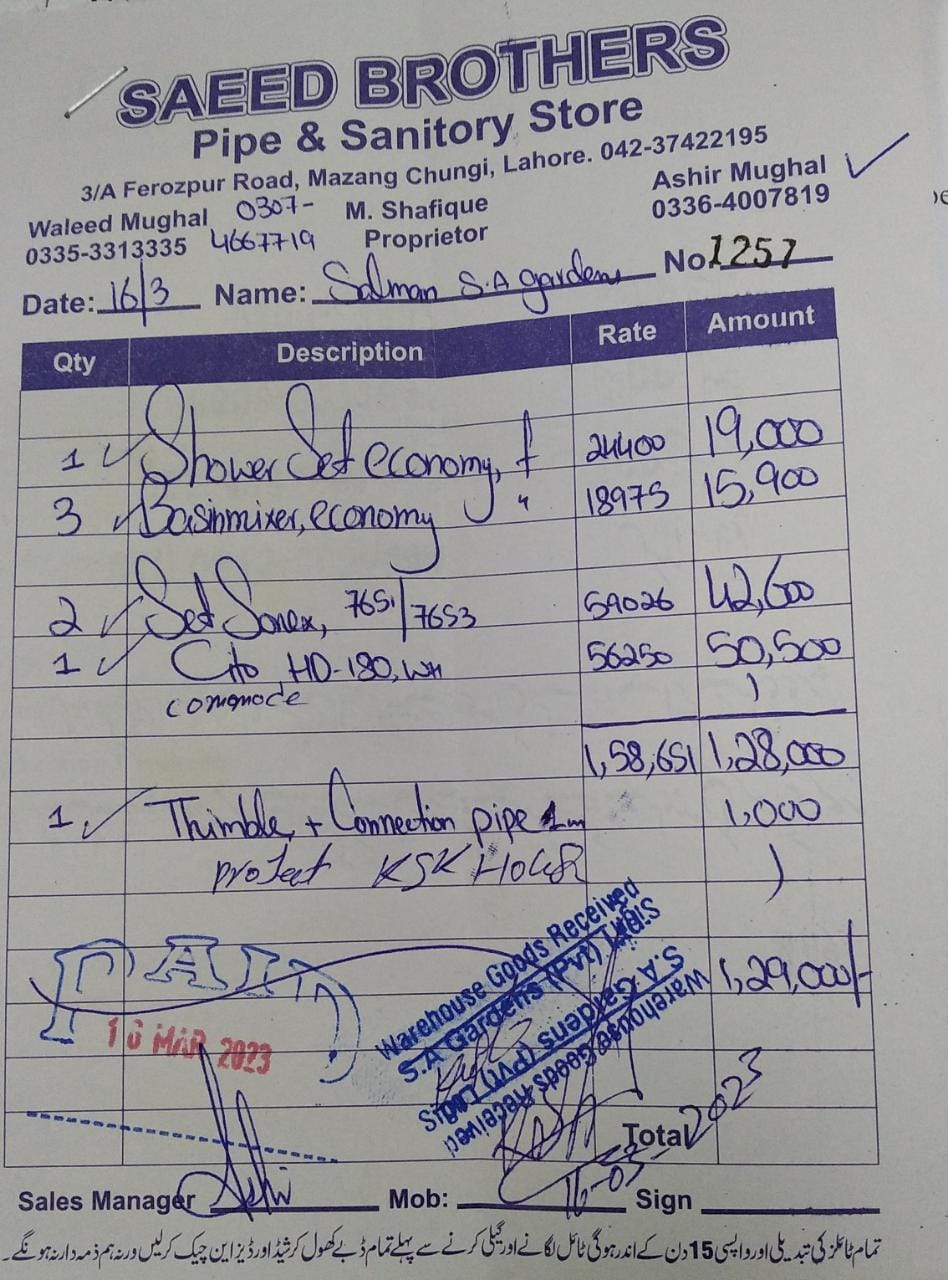 SAEED BROTHERS
Pipe & Sanitory Store
3/A Ferozpur Road, Mazang Chungi, Lahore. 042-37422195
Waleed Mughal 0307- M. Shafique Ashir Mughal
0335-3313335 4667719 Proprietor 0336-4007819
Date: 16/3 Name: Salman S.A gardens No 1257
Qty Description Rate Amount
1 Shower Set economy, f 24400 19,000
3 Basinmixer, economy " 18975 15,900
2 Set Sonex, 7651/7653 59026 42,600
1 Cito HD-180, WH 56250 50,500
commode
1,58,651 1,28,000
1 Thimble + Connection pipe 1m 1,000
project KSK House
1,29,000/-
PAID
16 MAR 2023
Warehouse Goods Received
S.A Gardens (Pvt) Ltd
Sign
S.A Gardens (Pvt) Ltd
Warehouse Goods Received
Sign
Total
16-03-2023
Sales Manager Mob: Sign
تمام ٹائلز کی تبدیلی اور واپسی 15 دن کے اندر ہوگی ٹائل لگانے اور گیلی کرنے سے پہلے تمام ڈبے کھول کر شیڈ اور ڈیزاین چیک کرلیں ورنہ ہم ذمہ دار نہ ہونگے۔